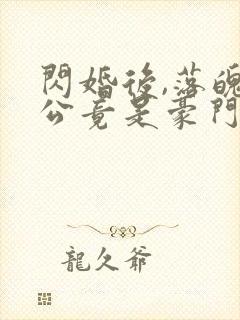 閃婚後,落魄
公竟是豪門
龍久爺